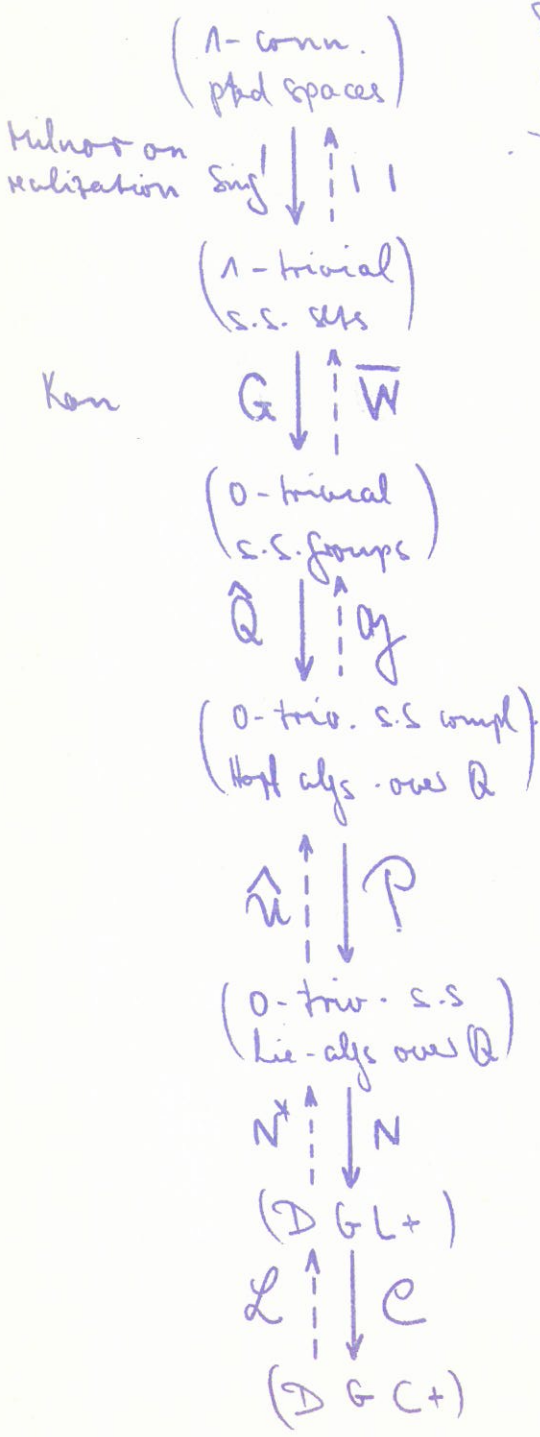 (1-conn.
ptd spaces)
Milnor on
realization Sing¹ ↓ ⇡ | |
(1-trivial
s.s. sets)
Kan G ↓ ⇡ W̅
(0-trivial
s.s. groups)
Q̂ ↓ ⇡ 𝒢
(0-triv. s.s compl
Hopf algs. over Q)
Û ⇡ ↓ P
(0-triv. s.s
Lie-algs over Q)
N* ⇡ ↓ N
(D G L +)
ℒ ⇡ ↓ C
(D G C +)